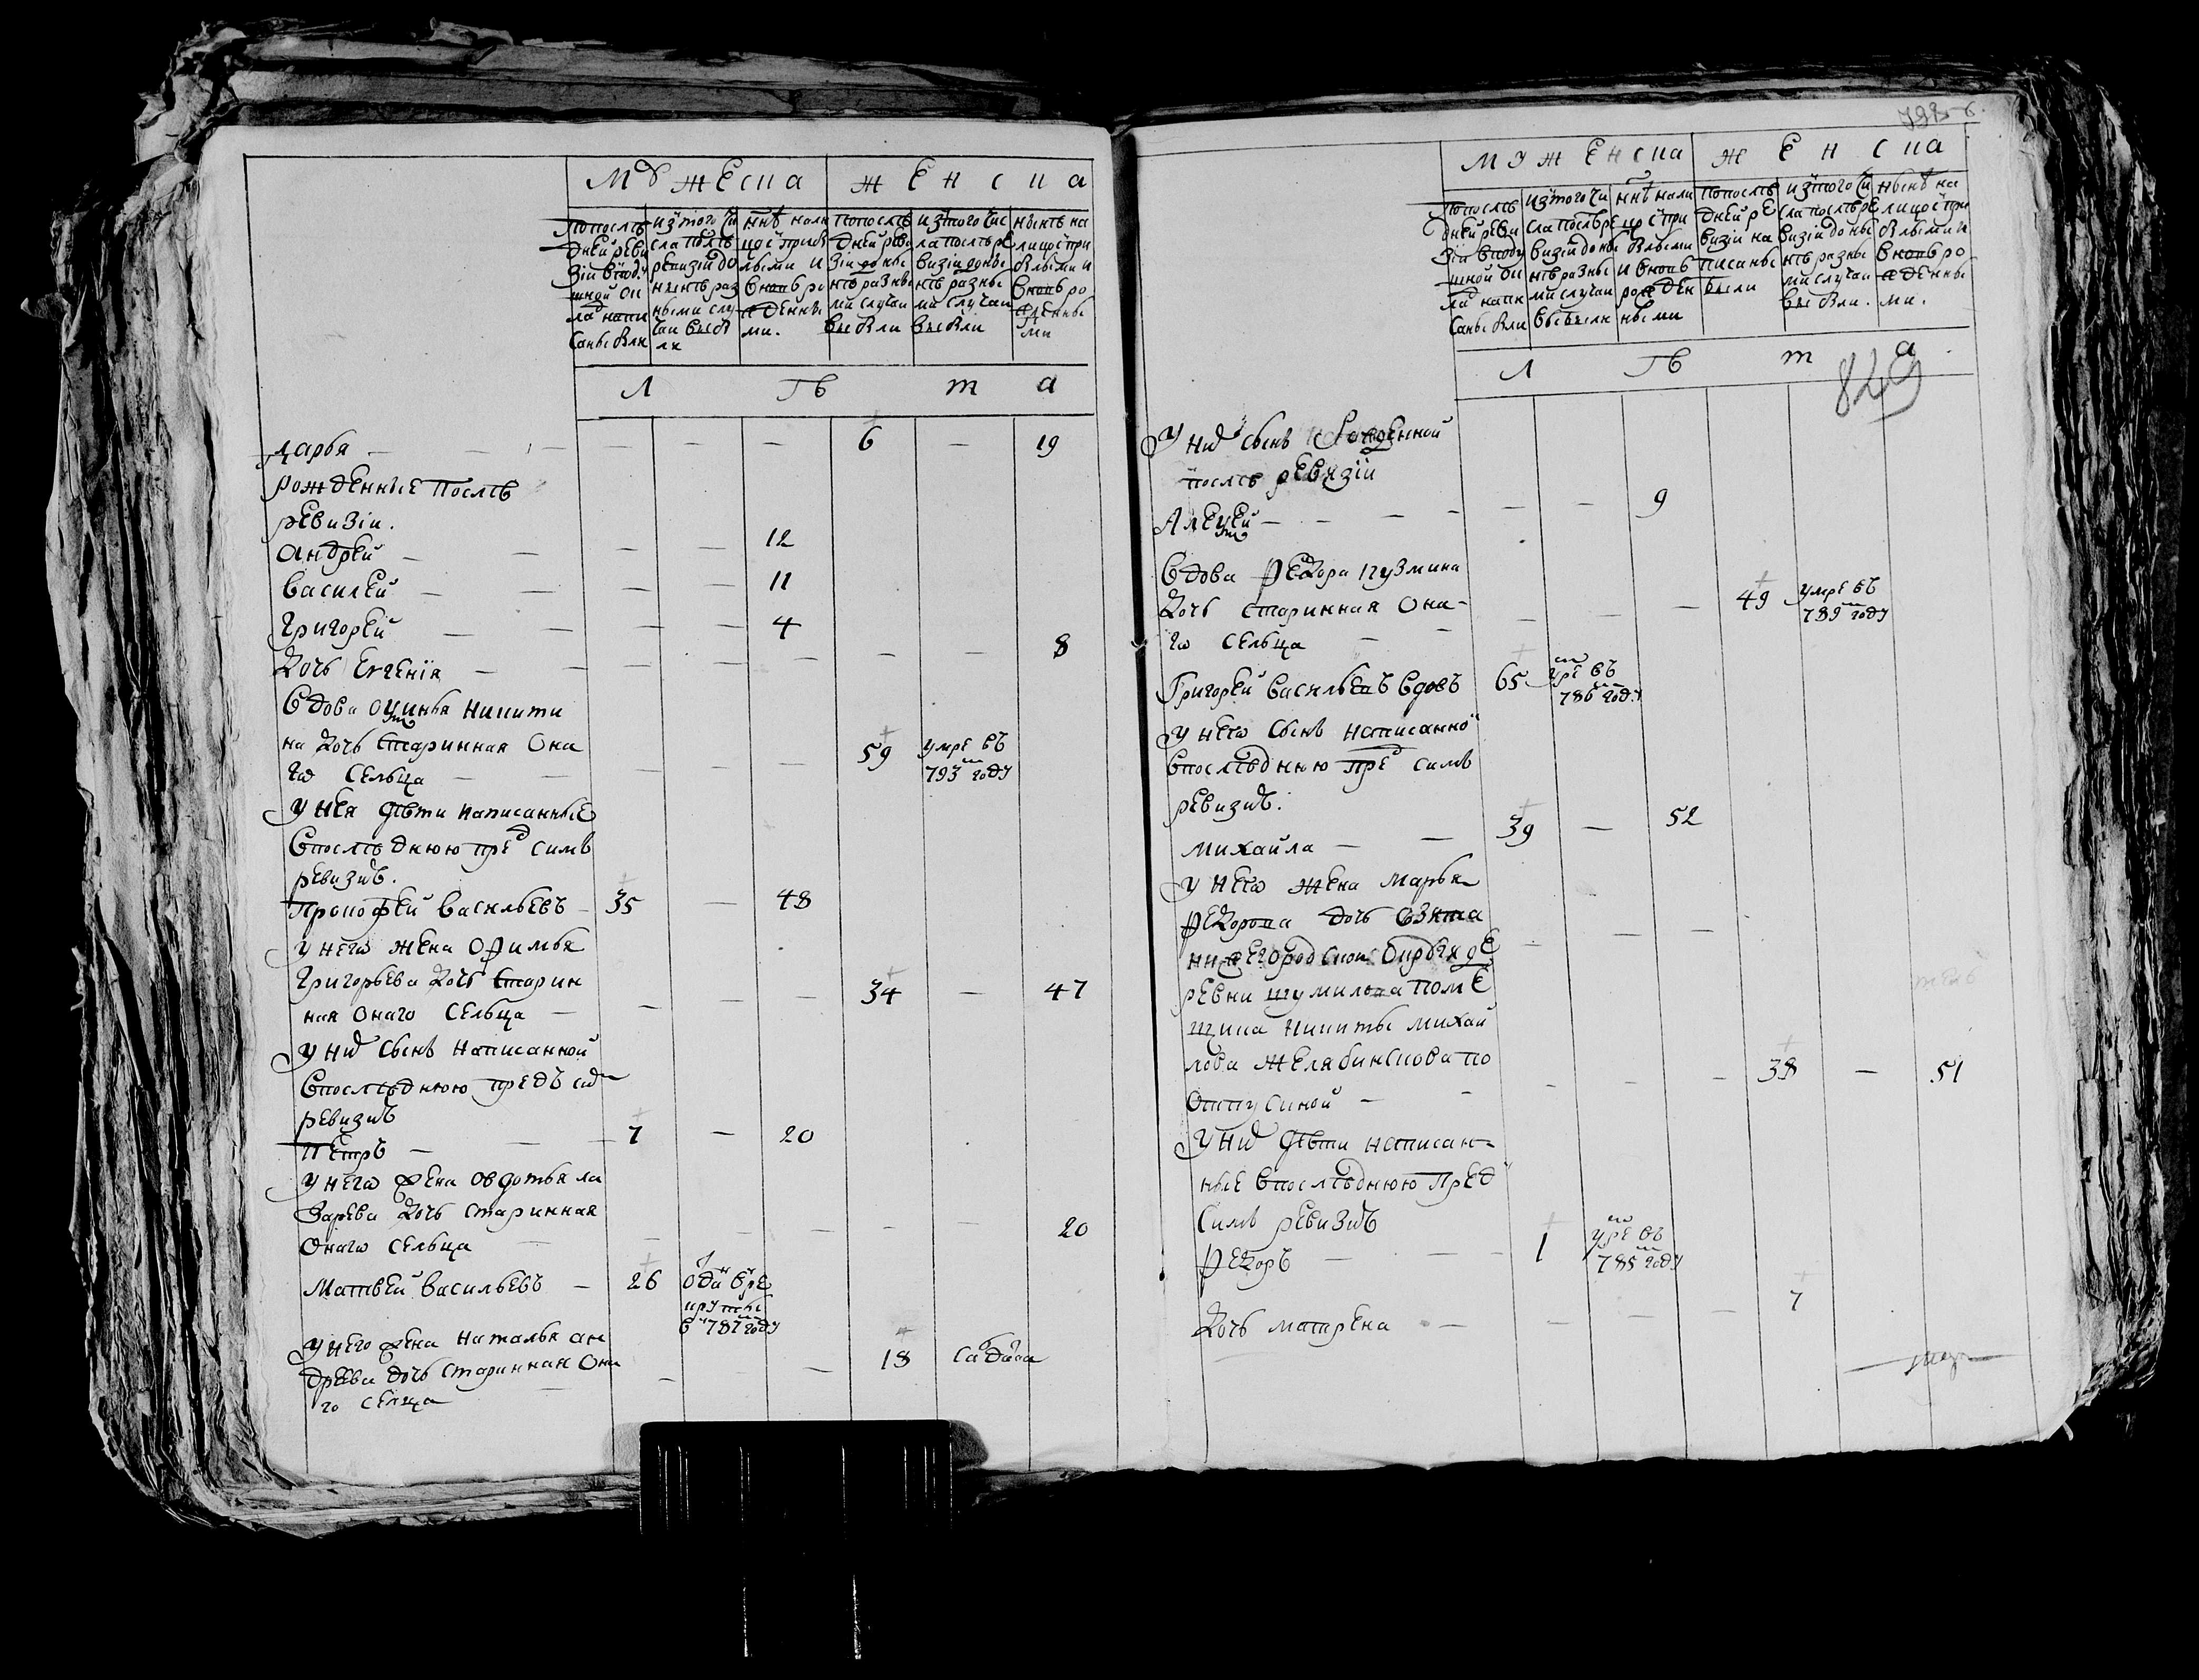 МУжЕСКА жЕНСКА
По послѣ
дней реви
зїи в подУ
шной ок
лад напи
саны были
из того чи
сла послѣ
ревизїи до
нынѣ раз
ными слУ
чаи выбы
ли
ннѣ нали
цо с прибы
лыми и
вновь ро
жденны
ми.
По послѣ
дней реви
из того чис
ла послѣ ре
визїи до ны
нѣ разны
ми слУчаи
выбыли
нынѣ на
лицо с при
былыми и
вновь ро
жденны
ми
Л Ѣ т а
дарья — — — — — 6 — 19
рожденные послѣ
ревизїи.
андрей — — — — 12
василей — — — 11
григорей — — — — 4
дочь евгенїя — — — — — — — 8
вдова акулина никити
на дочь старинная она
го сельца — — — — — 59 умре въ 793м годУ
У нея дѣти написанные
в послѣднюю пред симъ
ревизиѣ.
Прокофей васильевъ — 35 — 48
У него жена офимья
григорьева дочь старин
ная онаго сельца — — — — 34 — 47
У них сынъ написанной
в послѣднюю предъ сим
ревизиѣ
петръ — — — 7 — 20
У него жена овдотья ла
зарева дочь старинная
онаго сельца — — — — — — 20
Матвей васильевъ — 26 отдан в ре
круты
в 787м годУ
У него жена наталья ан
древа дочь старинная она
го сельца — — — 18
792 6.
МУжЕНСКА жЕНСКА
по послѣ
дней реви
зїи в подУ
шной ок
лад напи
саны были
из того чи
сла послѣ ре
визїи до ны
нѣ разны
ми случаи
выбыли
ннѣ нали
цо с при
былыми
и вновь
рожден
ными
по послѣ
дней ре
визїи на
писаны
были
из того чи
сла послѣ ре
визїи до ны
нѣ разны
ми случаи
выбыли.
нынѣ на
лицо с при
былыми и
вновь ро
жденны
ми.
Л Ѣ т а
849
У них сынъ рожденной
послѣ ревизїи
Алексей — — — — — — 9
Вдова федора кузмина
дочь старинная она-
го сельца — — — — — 49 умре въ 789м годУ
Григорей васильевъ вдовъ 65 умре въ 786м годУ
У него сынъ написанной
в послѣднюю пред симъ
ревизиѣ.
михайла — — 39 — 52
У него жена марья
федорова дочь взята
нижегородской округи де
ревни шумилова поме
щика никиты михай
лова желябинскова по
отпускной — — — — — 38 — 51
У них дѣти написан=
ные в послѣднюю пред
симъ ревизиѣ
федоръ — — — 1 умре въ 785м годУ
дочь матрена — — — — 7